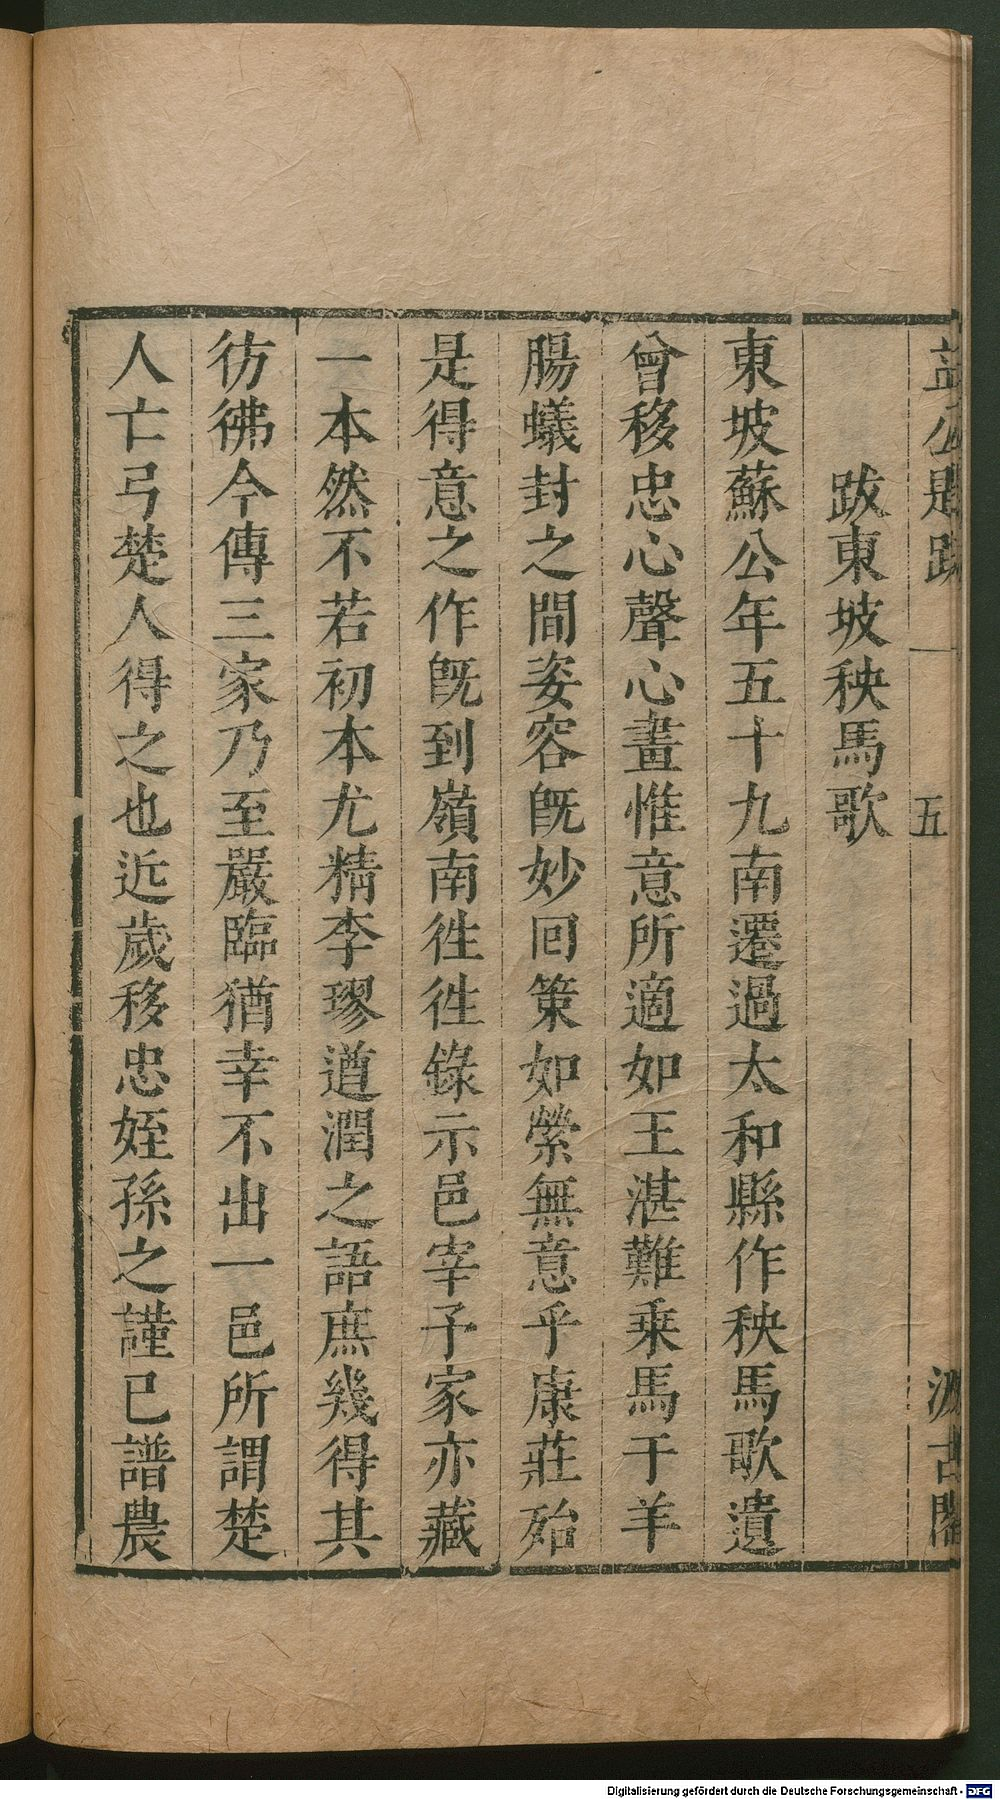 益公題跋 一 五 汲古閣
跋東坡秧馬歌
東坡蘇公年五十九南遷過太和縣作秧馬歌遺
曾移忠心聲心畫惟意所適如王湛難乗馬于羊
腸蟻封之間姿容旣妙回策如縈無意乎康莊殆
是得意之作旣到嶺南徃徃錄示邑宰予家亦藏
一本然不若初本尤精李璆遒潤之語庶幾得其
彷彿今傳三家乃至嚴臨猶幸不出一邑所謂楚
人亡弓楚人得之也近歲移忠姪孫之謹已譜農
Digitalisierung gefördert durch die Deutsche Forschungsgemeinschaft - DFG